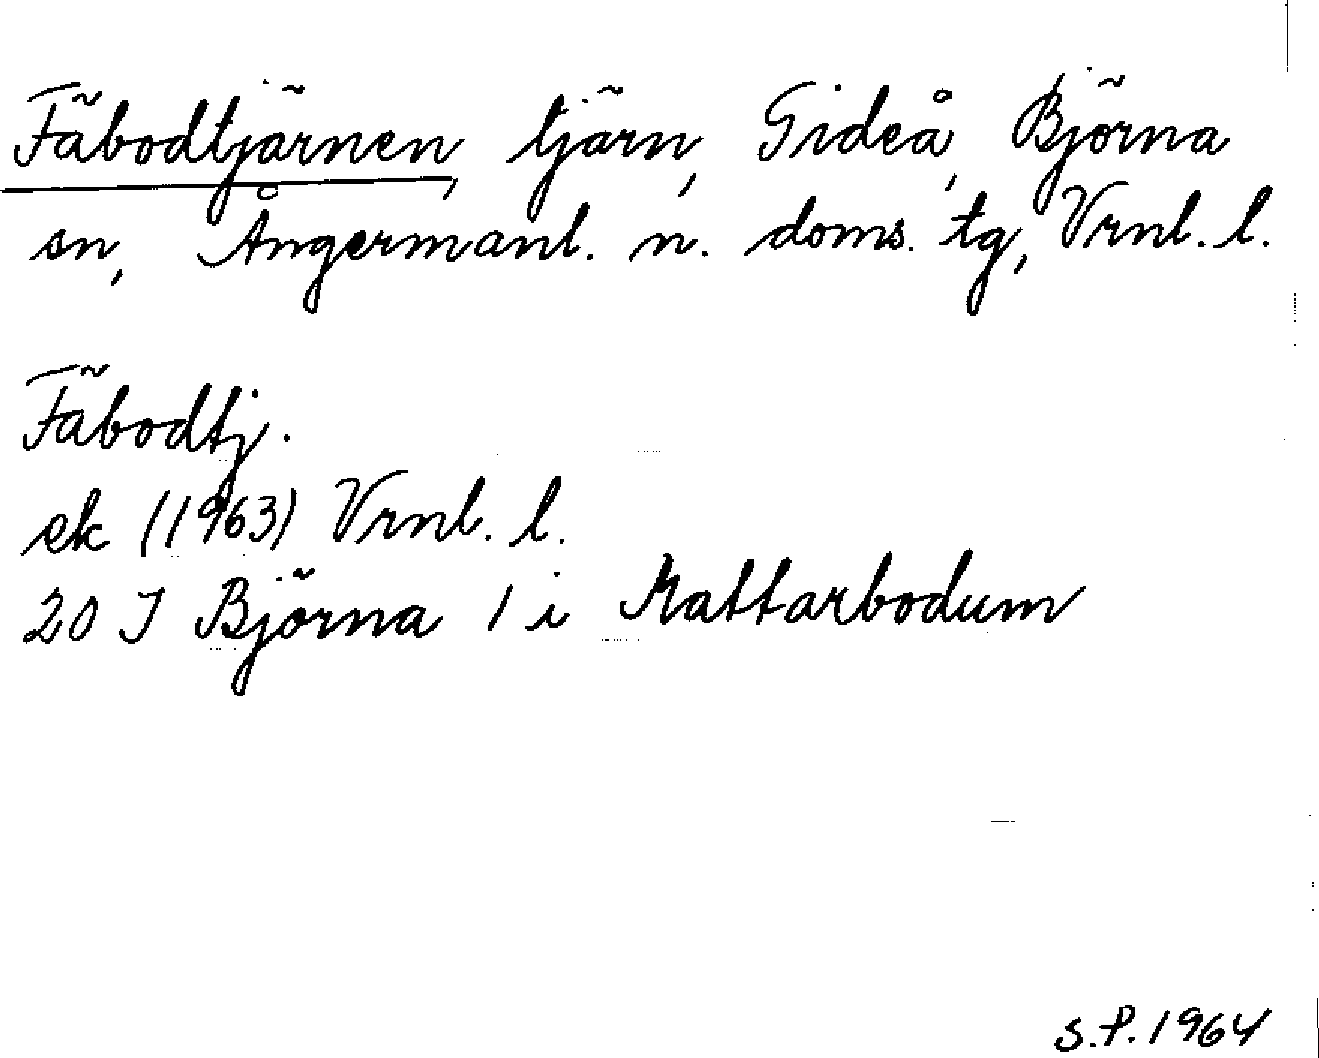 Fäbodtjärnen, tjärn, Gideå, Björna
sn, Ångermanl. n. doms. tg, Vrnl. l.
Fäbodtj.
ek (1963) Vrnl. l.
20 J Björna 1 i Mattarbodum
S.P. 1964